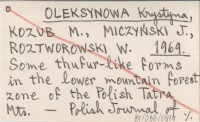 OLEKSYNOWA Krystyna,
KOZUB M., MICZYŃSKI J.,
ROZTWOROWSKI W. 1969.
Some thufur-like forms
in the lower mountain forest
zone of the Polish Tatra
Mts. — Polish Journal of ./.